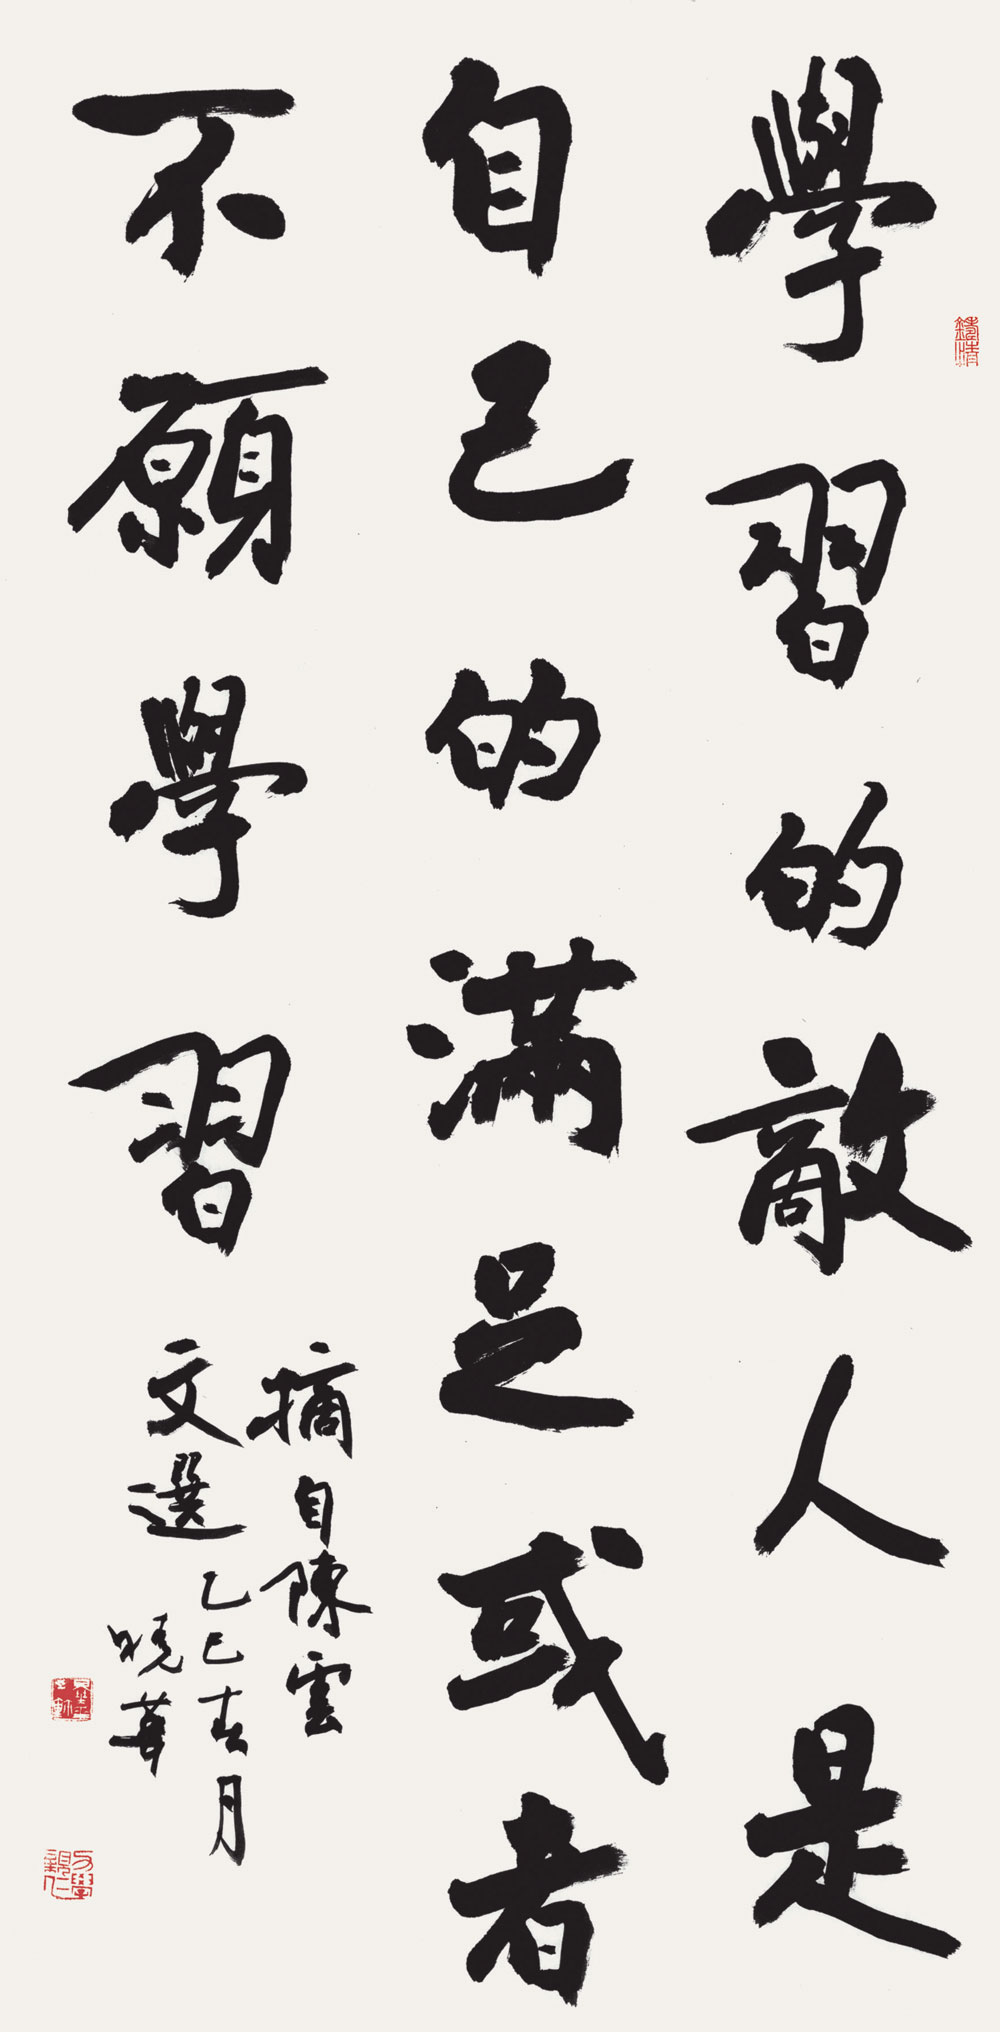 學習的敵人是
自己的滿足或者
不願學習
摘自陳雲
文選乙巳春月
曉華